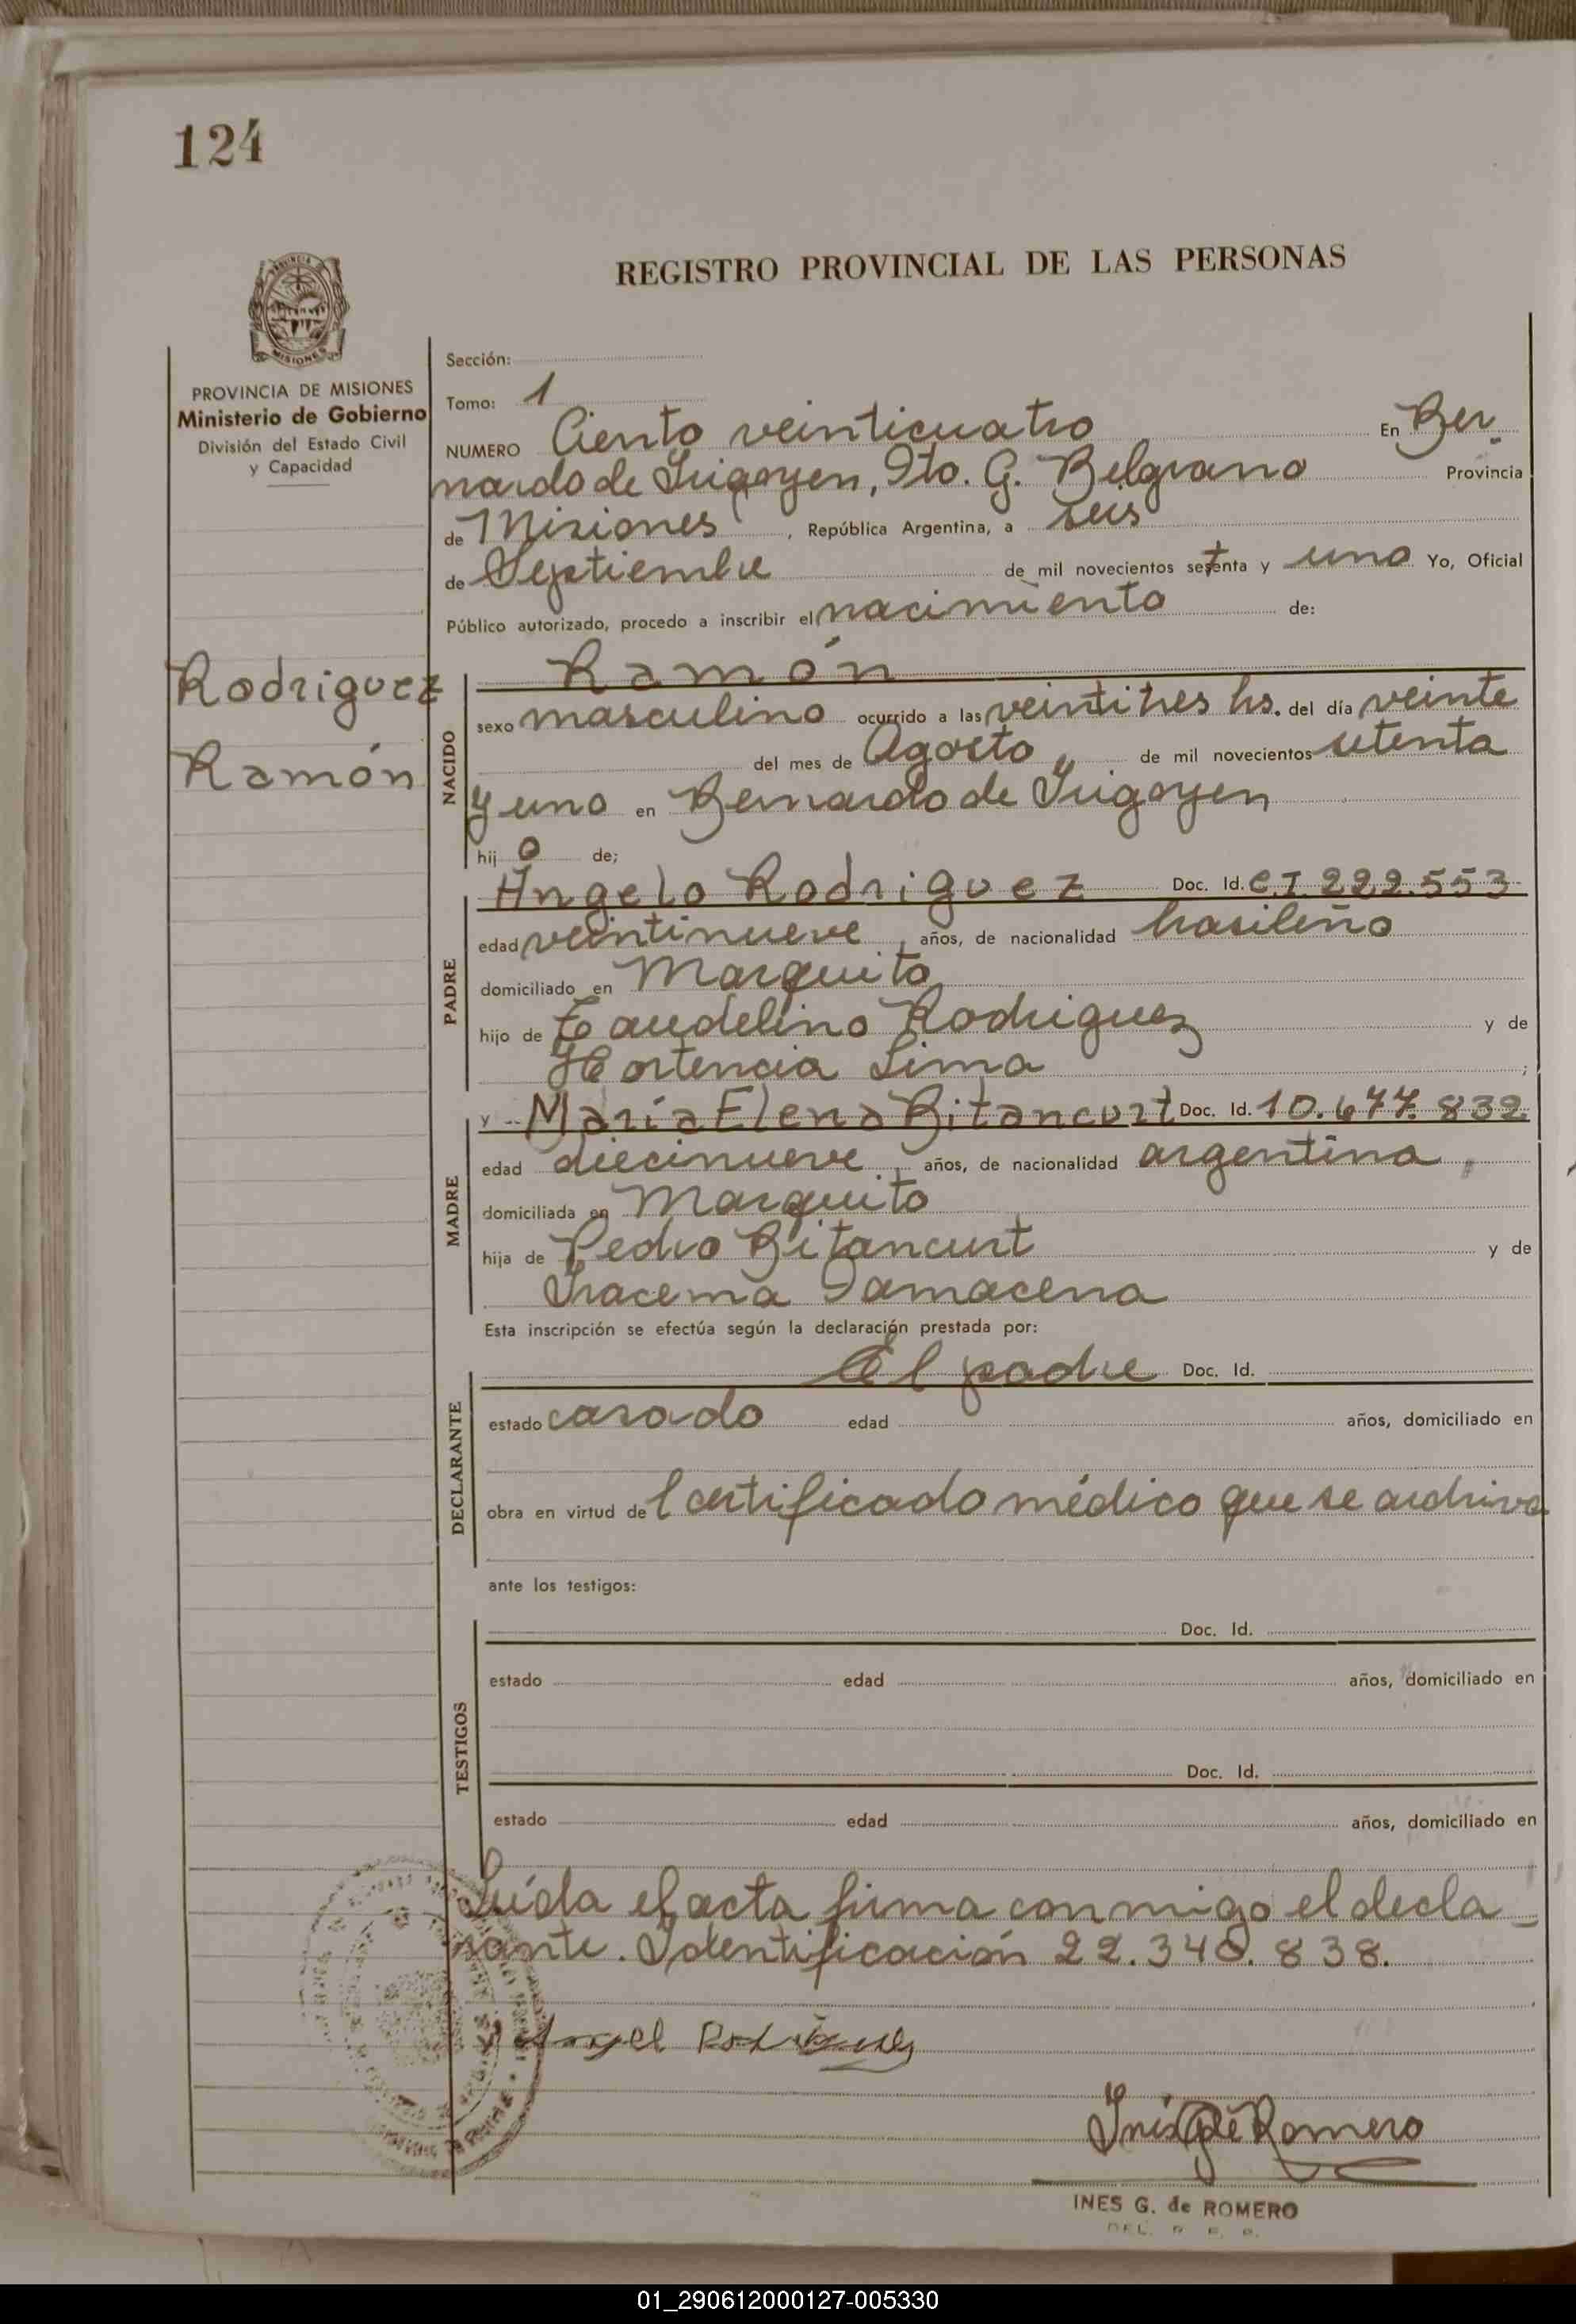 124
REGISTRO PROVINCIAL DE LAS PERSONAS
MISIONES
PROVINCIA DE MISIONES
Ministerio de Gobierno
División del Estado Civil
y Capacidad
Rodriguez
Ramón
Sección:
Tomo: 1
NUMERO Ciento veinticuatro En Ber-
nardo de Irigoyen, Dto. G. Belgrano Provincia
de Misiones, República Argentina, a seis
de Septiembre de mil novecientos setenta y uno Yo, Oficial
Público autorizado, procedo a inscribir el nacimiento de:
NACIDO
Ramón
sexo masculino ocurrido a las veintitres hs. del día veinte
del mes de Agosto de mil novecientos setenta
y uno en Bernardo de Irigoyen
hij o de;
PADRE
Angelo Rodriguez Doc. Id. C.I. 222.553
edad veintinueve, años, de nacionalidad brasileño
domiciliado en Marquito
hijo de Rodriguez y de
Hortencia Lima ;
MADRE
y María Elena Bitancurt Doc. Id. 10.677.832
edad diecinueve, años, de nacionalidad argentina,
domiciliada en Marquito
hija de Pedro Bitancurt y de
Iracema Damacena
Esta inscripción se efectúa según la declaración prestada por:
DECLARANTE
El padre Doc. Id.
estado casado edad años, domiciliado en
obra en virtud del certificado médico que se archiva
ante los testigos:
TESTIGOS
Doc. Id.
estado edad años, domiciliado en
Doc. Id.
estado edad años, domiciliado en
Leída el acta firma conmigo el decla-
rante. Identificación 22.340.838.
Angel Rodriguez
Inés G de Romero
INES G. de ROMERO
01_290612000127-005330